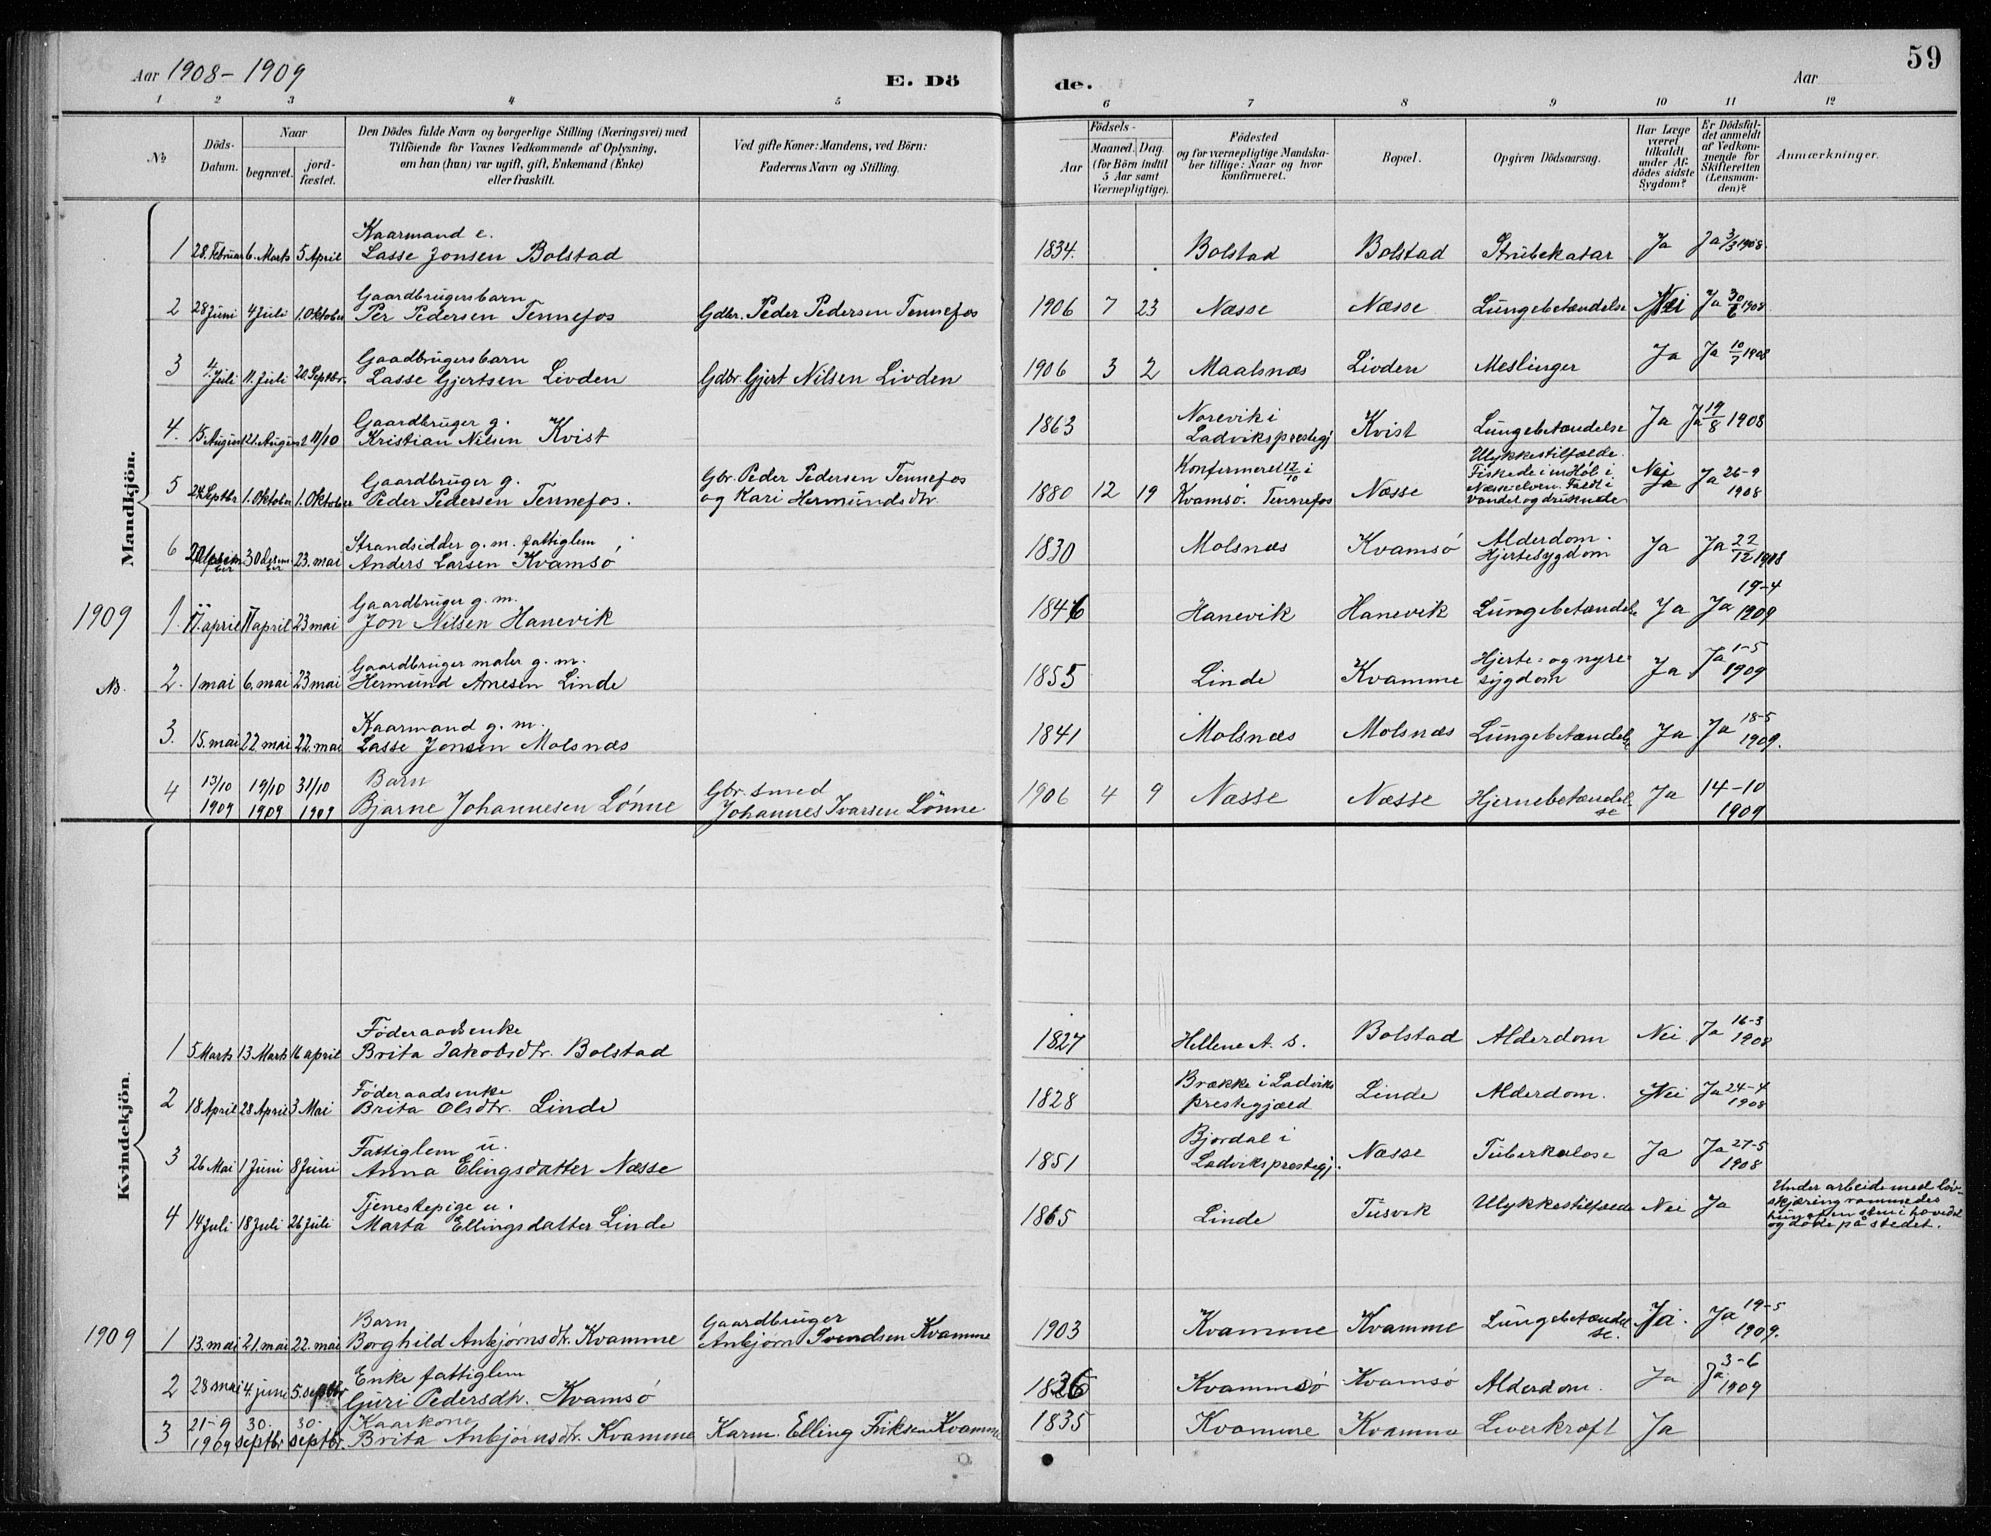 59
Aar 1908-1909
E. Dö
de.
Aar
1 2 3 4 5 6 7 8 9 10 11 12
No
Döds-
Datum.
Naar
begravet.
jord-
fæstet.
Den Dödes fulde Navn og borgerlige Stilling (Næringsvei) med
Tilföiende for Voxnes Vedkommende af Oplysning,
om han (hun) var ugift, gift, Enkemand (Enke)
eller fraskilt.
Ved gifte Koner: Mandens, ved Börn:
Faderens Navn og Stilling.
Födsels-
Aar
Maaned.
Dag.
(for Börn indtil
5 Aar samt
Værnepligtige).
Födested
og for værnepligtige Mandska-
ber tillige: Naar og hvor
konfirmeret.
Bopæl.
Opgiven Dödsaarsag.
Har Læge
været
tilkaldt
under Af-
dödes sidste
Sygdom?
Er Dödsfal-
det anmeldt
af Vedkom-
mende for
Skifteretten
(Lensman-
den)?
Anmærkninger.
Mandkjön.
Kaarmand e.
1 28. Februar 6. Marts 5 April Lasse Jonsen Bolstad 1834. Bolstad Bolstad Strübekatar Ja Ja 3/3 1908
Gaardbrugersbarn
2 28 Juni 4 Juli 1. Oktober Per Pedersen Tennefos Gdbr. Peder Pedersen Tennefos 1906 7 23 Næsse Næsse Lüngebetændelse Nei Ja 30/6 1908
Gaadbrugersbarn
3 4. Juli 11. Juli 20. Septbr. Lasse Gjertsen Livden Gdbr. Gjert Nilsen Livden 1906 3 2 Maalsnæs Livden Meslinger Ja Ja 10/7 1908
Gaardbruger g. Norevik i
4. 15 August 21. August 11/10 Kristian Nilsen Kvist 1863 Ladviksprestegj Kvist Lüngebetændelse Ja Ja 19/8 1908
Gaardbruger g. Gbr. Peder Pedersen Tennefos Konfirmeret 12/10 i Ulykkestilfælde.
Fiskede i en Høl i
5 24 Septbr 1. Oktober 1. Oktober Peder Pedersen Tennefos. og Kari Hermündsdtr. 1880 12 19 Kvamsö. Tennefos Næsse Næsseelven. Faldt i Nei Ja Ja 26-9 1908
Vandet og druknede
Strandsidder g. m. fattiglem Alderdom.
6 30 23. mai Anders Larsen Kvamsó 1830 Molsnæs Kvamsó Hjertesygdom Ja Ja 22/12 1908
1909
Gaardbruger g. m.
1. 11. april 17 april 23 mai Jon Nilsen Hanevik 1846 Hanevik Hanevik Lüngebetændelse Ja Ja 19-4 1909
Gaardbruger maler g. m. Hjerte- og nyre-
2. 1 mai 6. mai 23 mai Hermünd Arnesen Linde 1855 Linde Kvamme sygdom Ja Ja 1-5 1909
Kaarmand g. m.
3. 15. mai 22 mai 22. mai Lasse Jonsen Molsnæs 1841 Molsnæs Molsnæs Lüngebetændelse Ja Ja 18-5 1909.
Barn Gbr. smed
4 13/10 1909 19/10 1909 31/10 1909 Bjarne Johannesen Lönne Johannes Ivarsen Lönne 1906 4 9 Næsse Næsse Hjernebetændelse Ja 14-10 1909
Kvindekjön.
Föderaadsenke
1 5 Marts 13 Marts 16 april Brita Jakobsdtr. Bolstad 1827 Hellene A. S. Bolstad Alderdom Nei Ja 16-3 1908
Föderaadsenke Brække i Ladviks
2 18 April 28 April 3 Mai Brita Olsdtr. Linde 1828 prestegjæld Linde Alderdom. Nei Ja 24-4 1908
Fattiglem ü. Bjordal i
3 26 Mai 1 Juni 8 Juni Anna Elingsdatter Næsse 1851 Ladviksprestegj. Næsse Tüberkulose Ja Ja 27-5 1908
Tjenestepige u.
4 14 Juli 18 Juli 26 Juli Marta Ellingsdatter Linde 1865 Linde Tüsvik Ulykkestilfælde Nei Ja
Under arbeide med løv-
skjæring rammedes
hün af en sten i hovedet
og døde på stedet.
1909
Barn Gaardbruger
1 13. mai 21. mai 22. mai Borghild Anbjörnsdtr. Kvamme Anbjörn Kvamme 1903 Kvamme Kvamme Lüngebetændelse. Ja. Ja 19-5 1909.
Enke fattiglem
2 28 mai 4. june 5. septbr Guri Pedersdtr. Kvamsó 1836 Kvammsö Kvamsó Alderdom. Ja Ja 3-6 1909
Kaarkone
3 21-9 1909 30. septbr 30. septbr. Brita Anbjornsdtr. Kvamme Karm. Elling Kvamme 1835 Kvamme Kvamme Leverkræft Ja